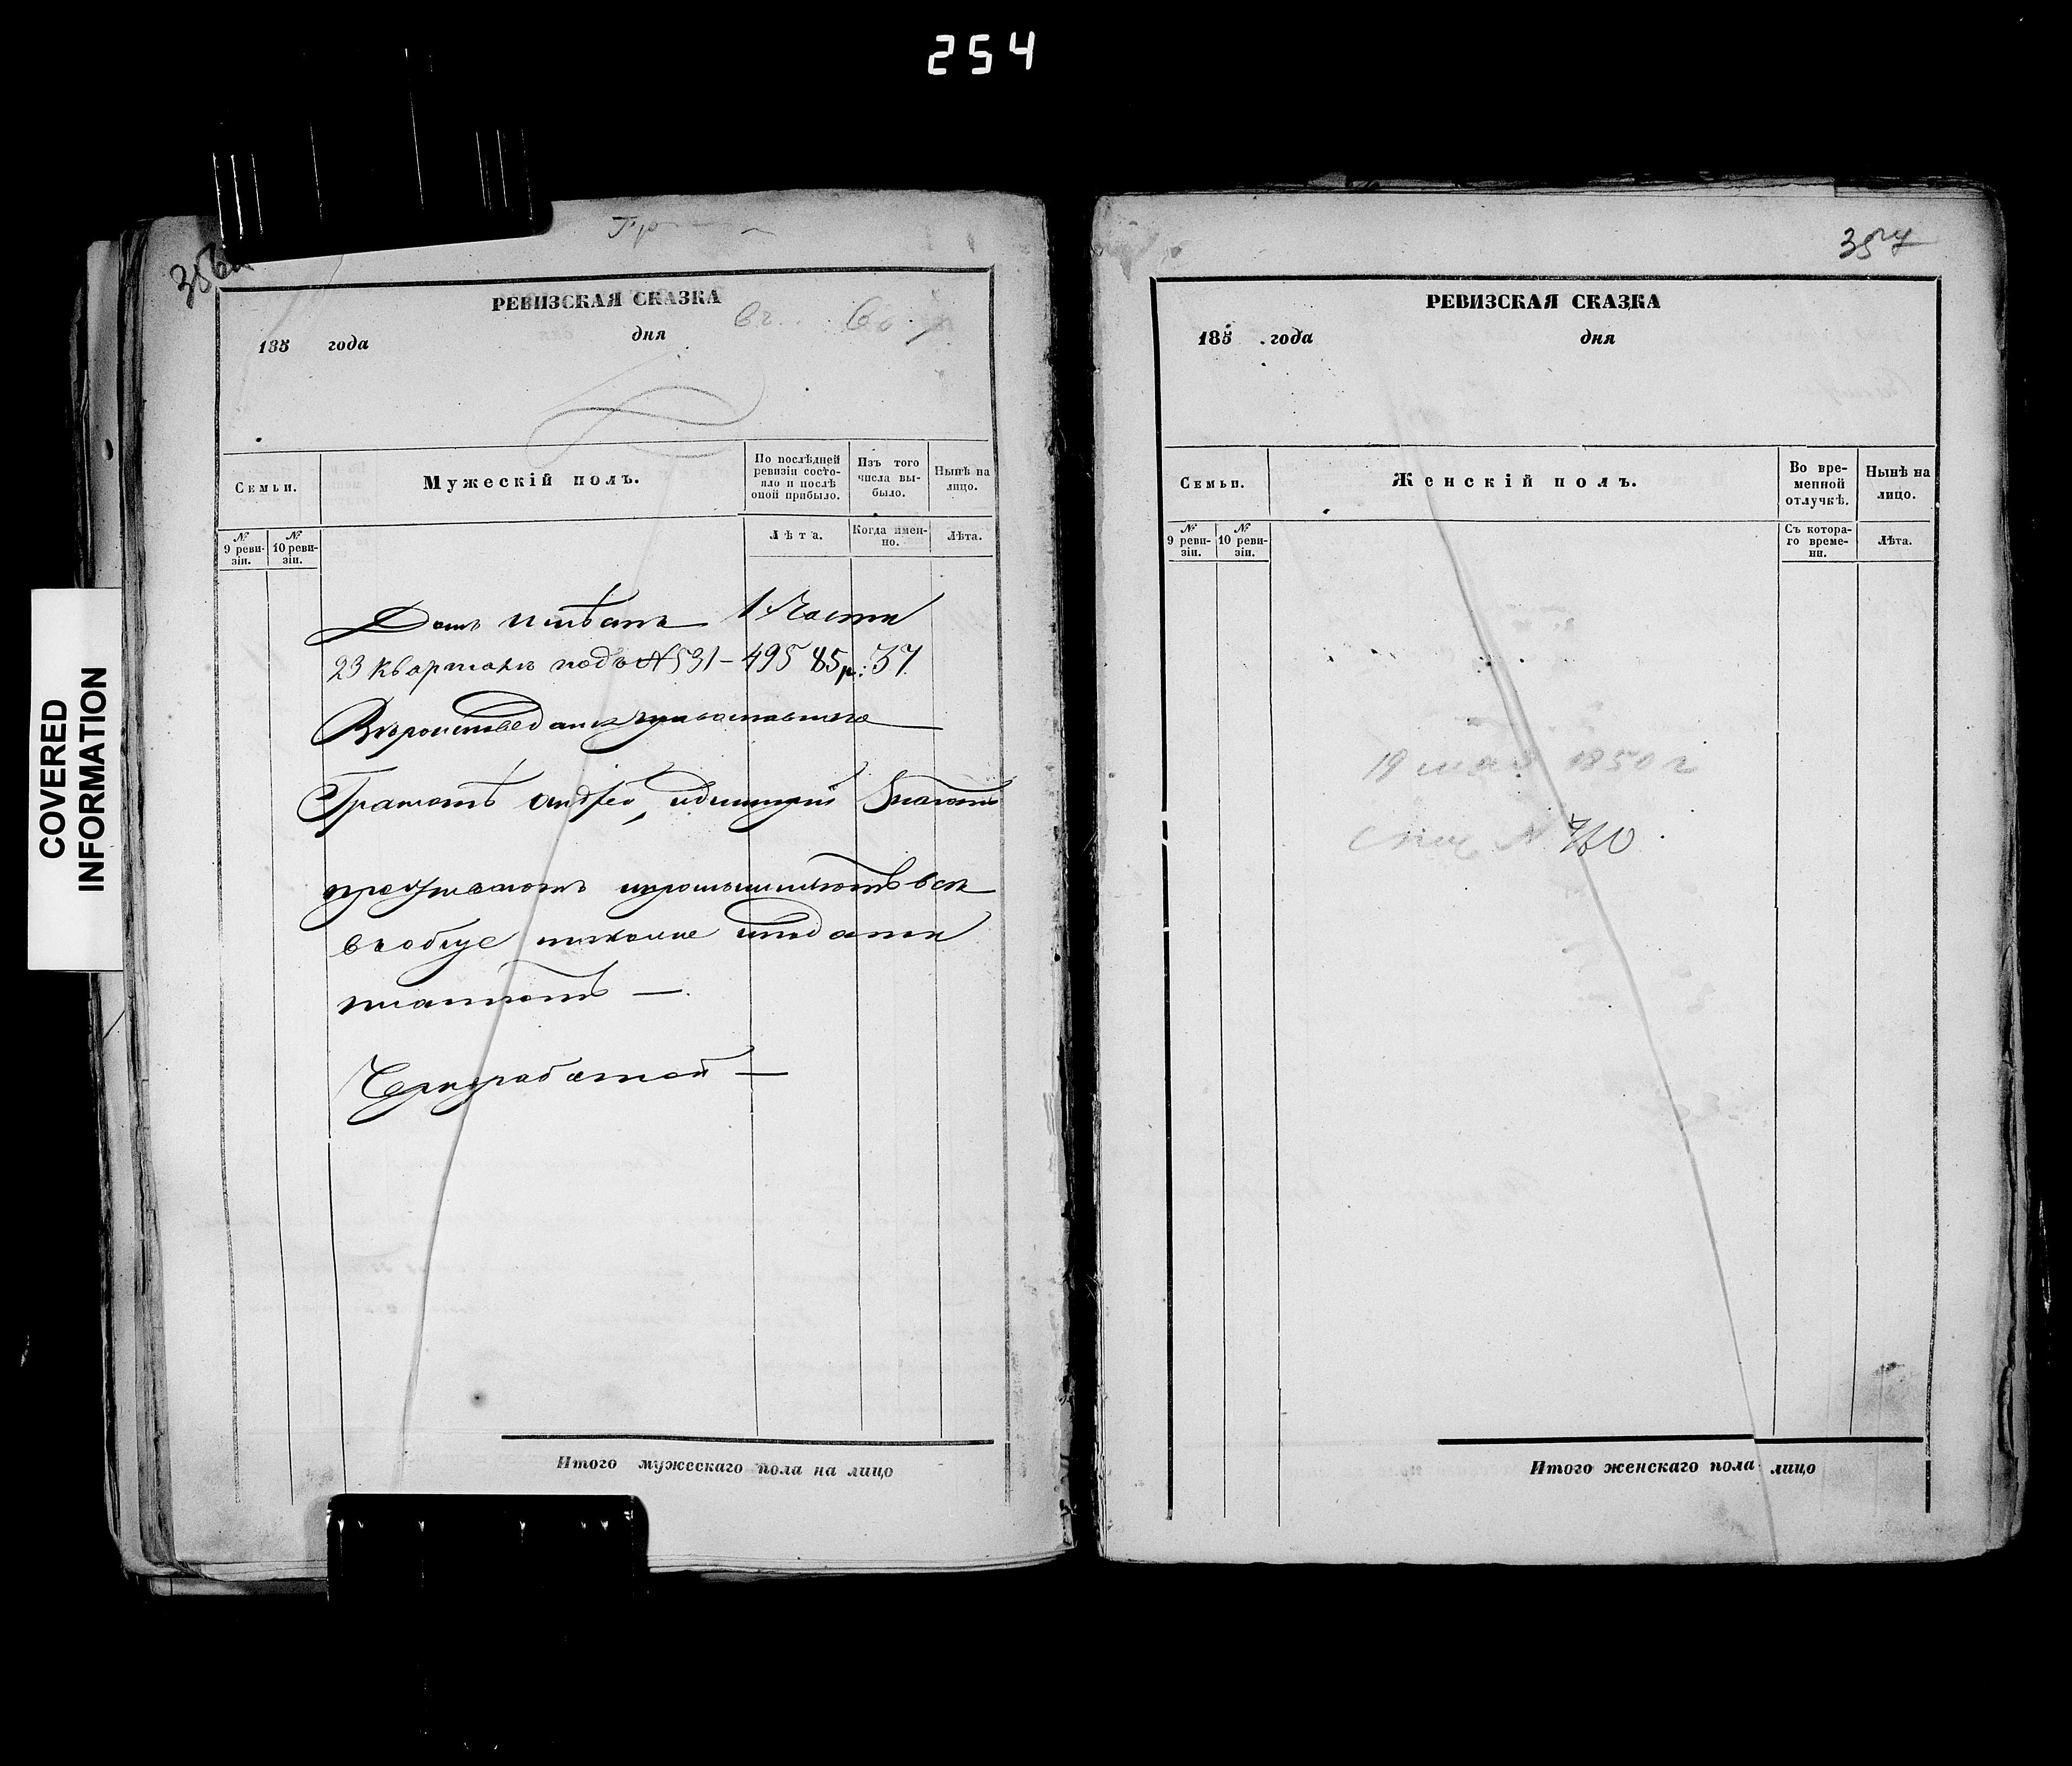 254
COVERED
INFORMATION
РЕВИЗСКАЯ СКАЗКА
185 года дня
Семьи.
Мужескій полъ.
По послѣдней ревизіи состояло и послѣ оной прибыло.
Изъ того числа выбыло.
Нынѣ на лицо.
№ 9 ревизіи.
№ 10 ревизіи.
Лѣта.
Когда именно.
Лѣта.
Домъ имѣютъ 1 Части
23 квартала подъ № 531 - 495 85 р: 37
Вѣроисповеданія православнаго
Грамотѣ Андрей, знаютъ
вообще подати
платятъ —
Чернорабочей —
Итого мужескаго пола на лицо
357
РЕВИЗСКАЯ СКАЗКА
185 года дня
Семьи.
Женскій полъ.
Во временной отлучкѣ.
Нынѣ на лицо.
№ 9 ревизіи.
№ 10 ревизіи.
Съ котораго времени.
Лѣта.
19 мая 1850 г
№ 760
Итого женскаго пола лицо